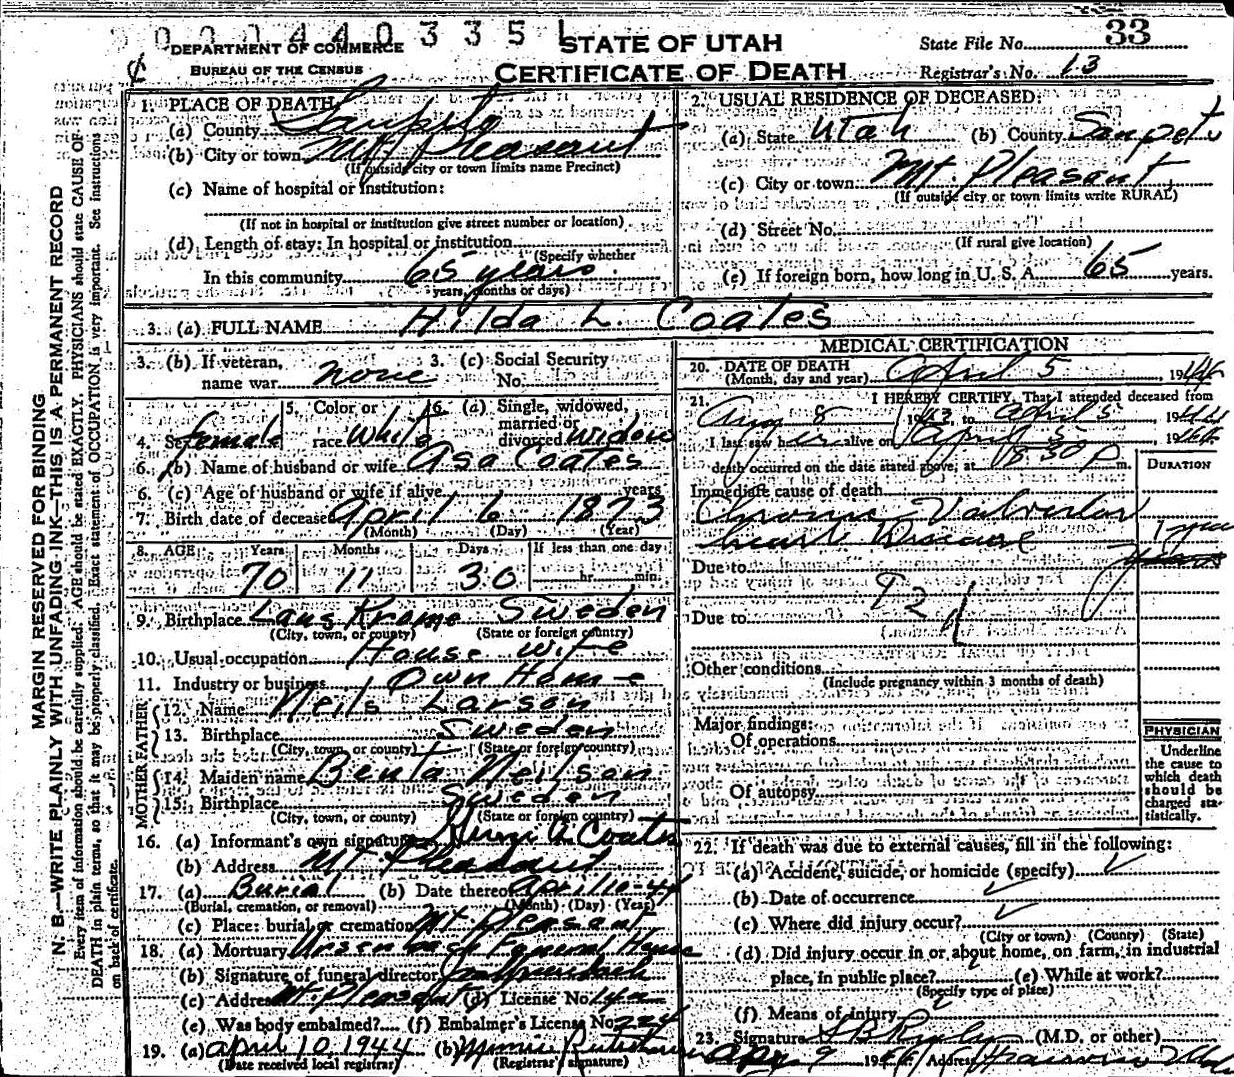 0 0 0 4 4 0 3 3 5 1
DEPARTMENT OF COMMERCE
BUREAU OF THE CENSUS
STATE OF UTAH
CERTIFICATE OF DEATH
State File No. 33
Registrar's No. 13
MARGIN RESERVED FOR BINDING
N. B.—WRITE PLAINLY WITH UNFADING INK—THIS IS A PERMANENT RECORD
Every item of information should be carefully supplied. AGE should be stated EXACTLY. PHYSICIANS should state CAUSE OF
DEATH in plain terms, so that it may be properly classified. Exact statement of OCCUPATION is very important. See instructions
on back of certificate.
1. PLACE OF DEATH
(a) County Sanpete
(b) City or town Mt Pleasant
(If outside city or town limits name Precinct)
(c) Name of hospital or institution:
(If not in hospital or institution give street number or location)
(d) Length of stay: In hospital or institution
(Specify whether
In this community 65 years
years, months or days)
2. USUAL RESIDENCE OF DECEASED:
(a) State Utah (b) County Sanpete
(c) City or town Mt. Pleasant
(If outside city or town limits write RURAL)
(d) Street No.
(If rural give location)
(e) If foreign born, how long in U. S. A. 65 years.
3. (a) FULL NAME Hilda L. Coates
3. (b) If veteran, name war none
3. (c) Social Security No.
4. Sex female
5. Color or race White
6. (a) Single, widowed, married or divorced widow
6. (b) Name of husband or wife Asa Coates
6. (c) Age of husband or wife if alive years
7. Birth date of deceased April 6 1873
(Month) (Day) (Year)
8. AGE Years Months Days If less than one day
70 11 30 hr. min.
9. Birthplace Lans Krome Sweden
(City, town, or county) (State or foreign country)
10. Usual occupation House wife
11. Industry or business Own Home
FATHER
12. Name Neils Larson
13. Birthplace Sweden
(City, town, or county) (State or foreign country)
MOTHER
14. Maiden name Benta Neilson
15. Birthplace Sweden
(City, town, or county) (State or foreign country)
16. (a) Informant's own signature A. Coates
(b) Address Mt Pleasant
17. (a) Burial (b) Date thereof April 10-44
(Burial, cremation, or removal) (Month) (Day) (Year)
(c) Place: burial or cremation Mt Pleasant
18. (a) Mortuary Ursenbach Funeral Home
(b) Signature of funeral director Ursenbach
(c) Address Mt. Pleasant (d) License No.
(e) Was body embalmed? (f) Embalmer's License No. 224
19. (a) April 10, 1944 (b)
(Date received local registrar) (Registrar's signature)
MEDICAL CERTIFICATION
20. DATE OF DEATH
(Month, day and year) April 5 1944
21. I HEREBY CERTIFY, That I attended deceased from
Aug 8 1943, to April 5, 1944
I last saw her alive on April 5, 1944
death occurred on the date stated above, at 8:30 P m.
DURATION
Immediate cause of death
Chronic Valvular
heart Disease
Due to years
92
Due to
Other conditions
(Include pregnancy within 3 months of death)
Major findings:
Of operations
Of autopsy
PHYSICIAN
Underline
the cause to
which death
should be
charged sta-
tistically.
22. If death was due to external causes, fill in the following:
(a) Accident, suicide, or homicide (specify)
(b) Date of occurrence
(c) Where did injury occur?
(City or town) (County) (State)
(d) Did injury occur in or about home, on farm, in industrial
place, in public place? (e) While at work?
(Specify type of place)
(f) Means of injury
23. Signature (M.D. or other)
9 1944 Address